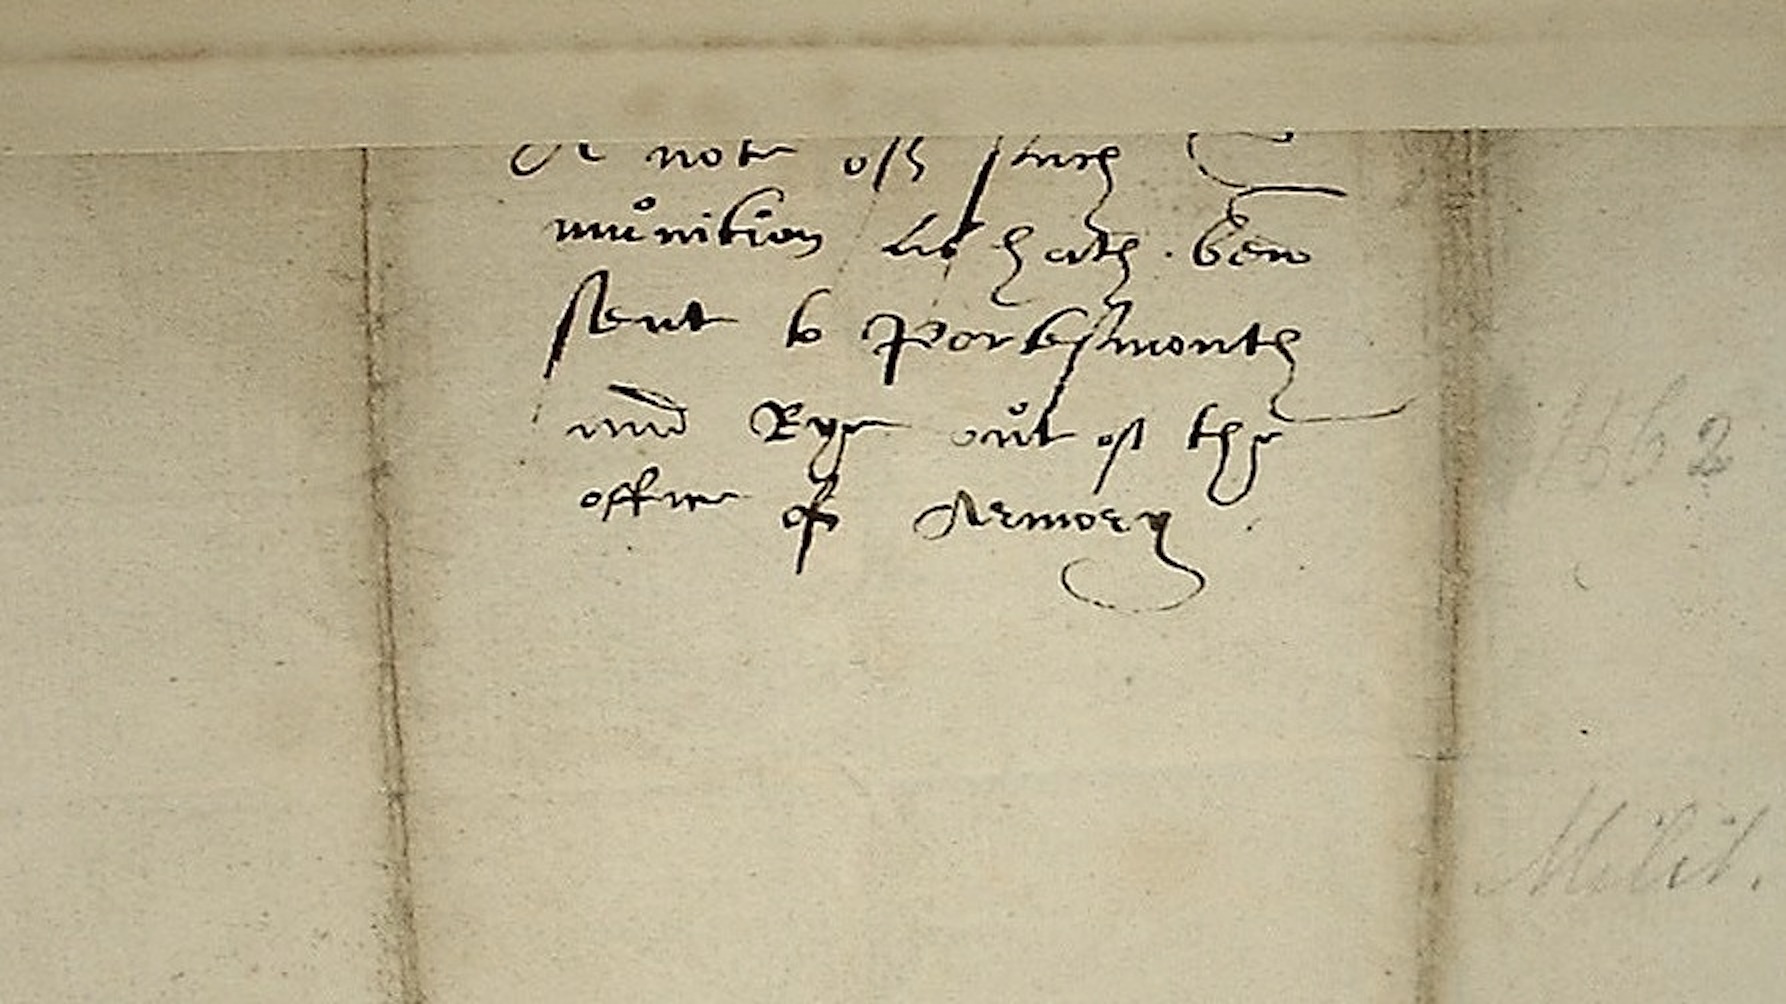 A note off such
munition as hath ben
sent to Portesmouth
and Rye out of the
office of Armory
1562
Milit.